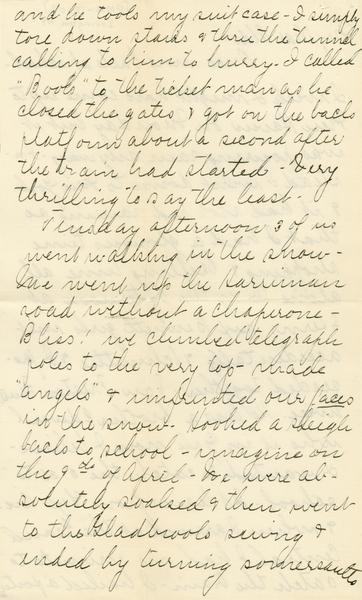 and he took my suit case - I simply
tore down stairs & thru the tunnel
calling to him to hurry - I called
"Boob" to the ticket man as he
closed the gates & got on the back
platform about a second after
the train had started - Very
thrilling to say the least -
Tuesday afternoon 3 of us
went walking in the snow -
We went up the Harriman
road without a chaperone -
Bliss! we climbed telegraph
poles to the very top - made
"angels" & imprinted our faces
in the snow - Hooked a sleigh
back to school - imagine on
the 9th of April - We were ab-
solutely soaked & then went
to the Gladbrook swing &
ended by turning somersaults